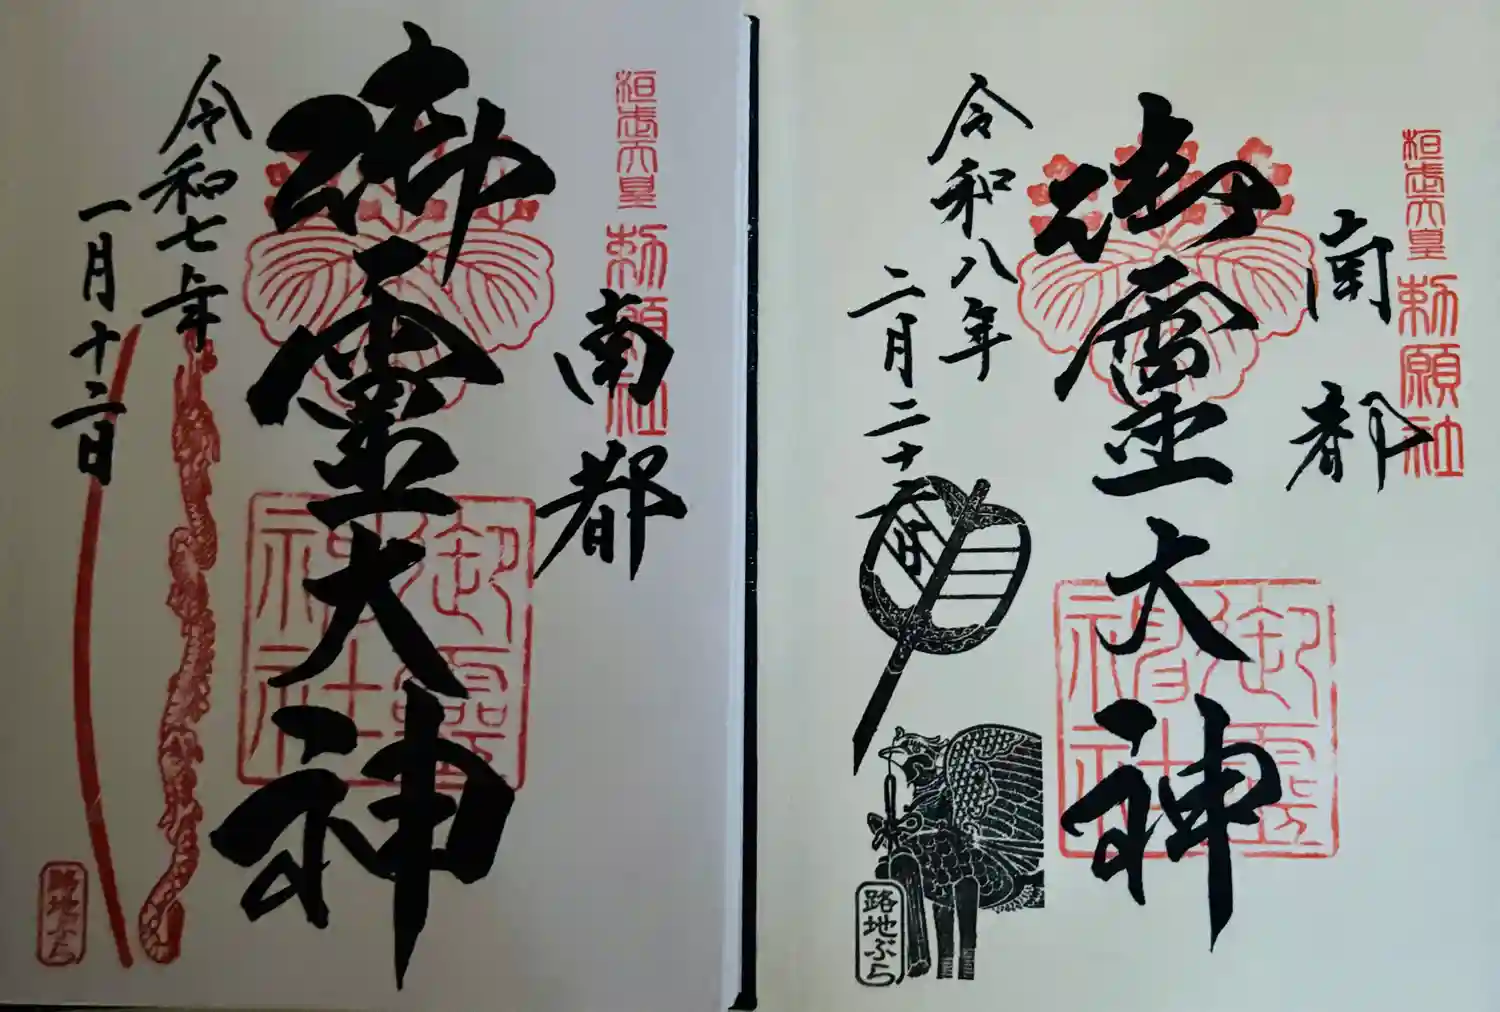 桓武天皇
勅願社
南都
御霊大神
御靈
神社
令和七年
一月十二日
路地ぶら
桓武天皇
勅願社
南都
御霊大神
御靈
神社
令和八年
二月二十
路地ぶら